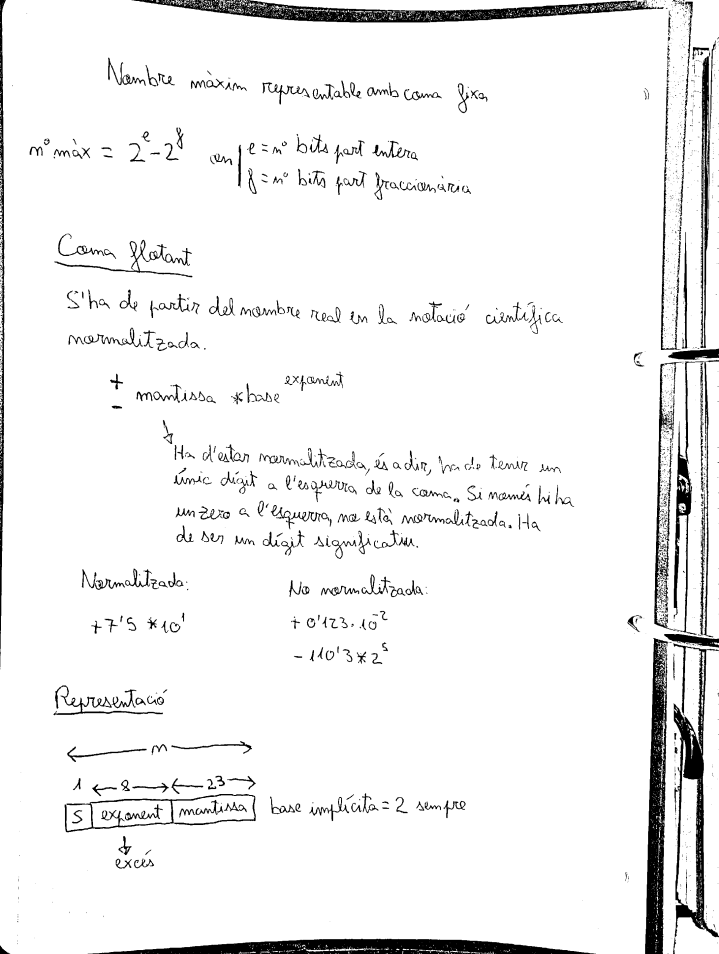 Nombre màxim representable amb coma fixa
nº màx = 2^e - 2^f on | e = nº bits part entera
f = nº bits part fraccionària
Coma flotant
S'ha de partir del nombre real en la notació científica
normalitzada.
± mantissa * base^exponent
↓
Ha d'estar normalitzada, és a dir, ha de tenir un
únic dígit a l'esquerra de la coma. Si només hi ha
un zero a l'esquerra, no està normalitzada. Ha
de ser un dígit significatiu.
Normalitzada: No normalitzada:
+7'5 * 10^1 +0'123·10^-2
-110'3 * 2^5
Representació
← n →
1 ← 8 → ← 23 →
S | exponent | mantissa base implícita = 2 sempre
↓
excés